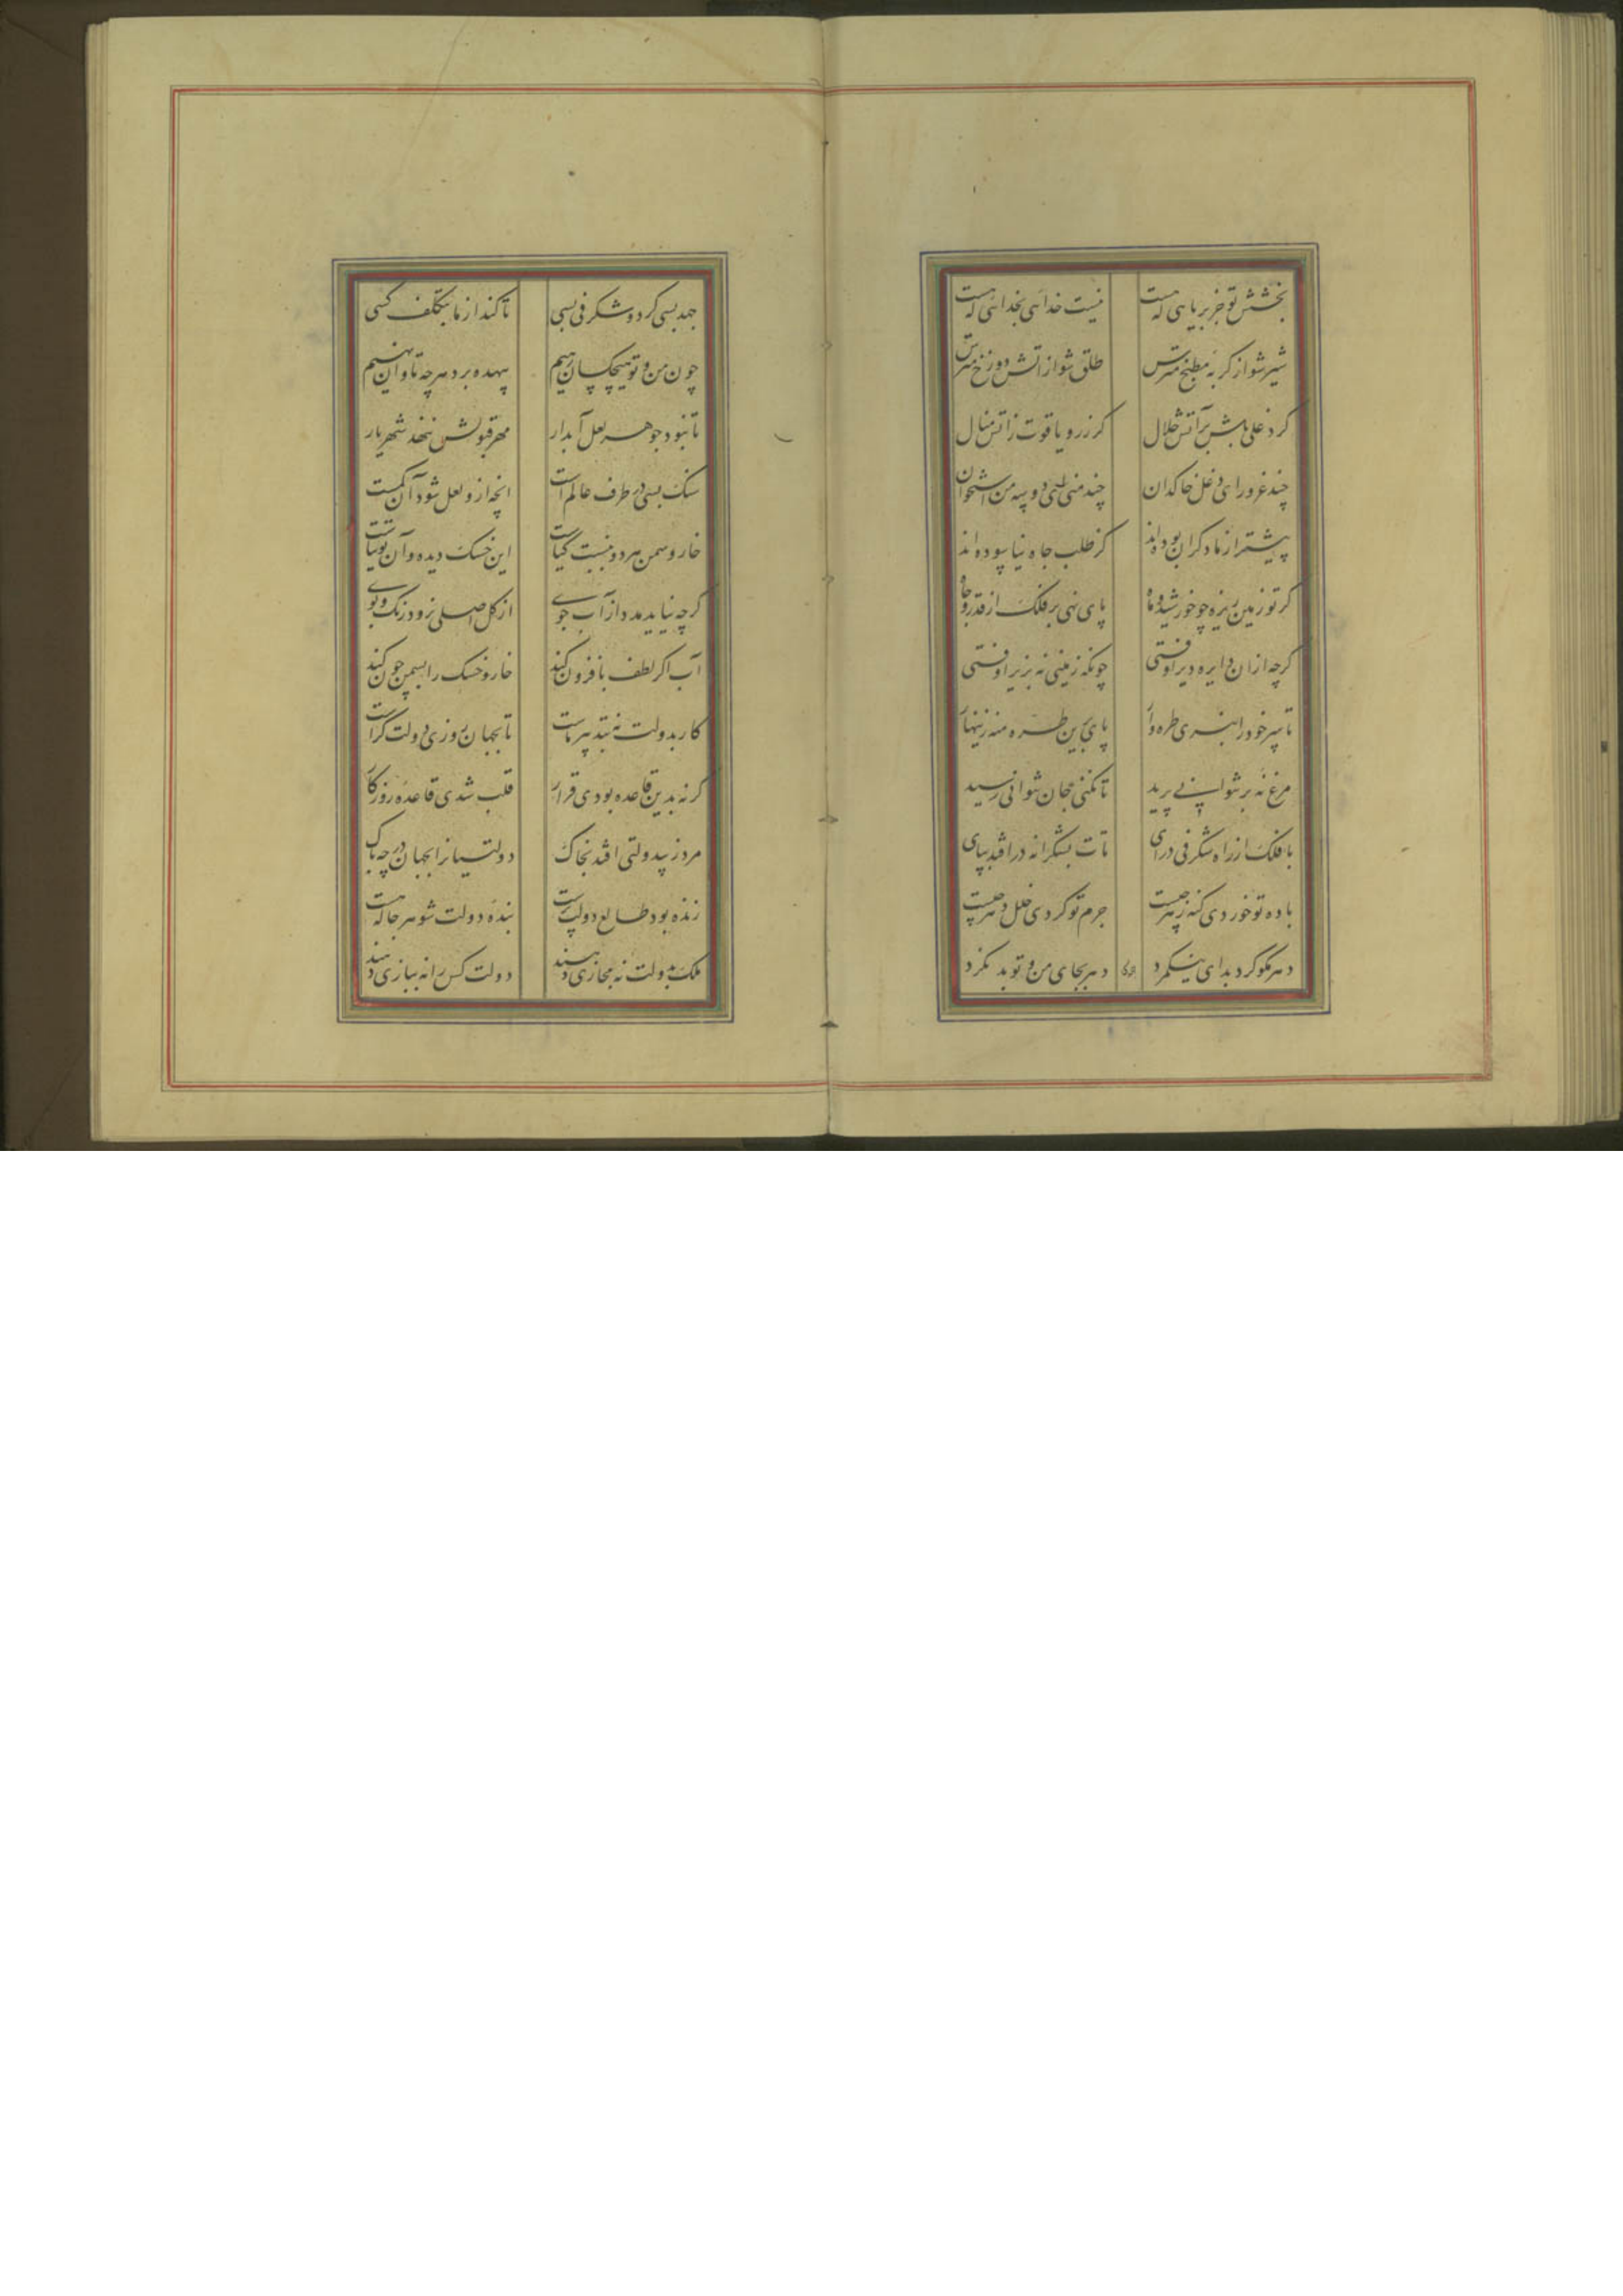 بخشش تو جز بریایی که هست نیست خدایی بخدایی که هست
شیر شو از کربه مطبخ مترس طلق شو از آتش دوزخ مترس
کر دغلی باش بر آتش حلال کر زر و یاقوت ز آتش منال
چند غرور ای دغل خاکدان چند منی ای دو سه من استخوان
پیشتر از ما دکران بوده‌اند کز طلب جاه نیاسوده‌اند
کر تو زمین ریزه چو خورشید و ماه پای نهی بر فلک از قدر و جاه
کرچه از ان دایره دیر اوفتی چونکه زمینی نه بزیر اوفتی
تا سر خود را نبری طره‌وار پای برین طره منه زینهار
مرغ نه بر نتوانی پرید تا نکنی جان نتوانی رسید
با فلک از راه شکرفی درای تات بشکرانه در افتد بپای
باده تو خوردی کنه زهر چیست جرم تو کردی خلل دهر چیست
دهر نکوکرد بدای نیکمرد دهر بجای من و تو بد نکرد
جهد بسی کرد و شکرفی بسی تا کند از ما بتکلف کسی
چون من و تو هیچکسان دهیم بیهده بر دهر چه تاوان نهیم
تا نبود جوهر لعل آبدار مهر قبولش ننهد شهریار
سنک بسی در طرف عالم است آنچه ازو لعل شود آن کمست
خار و سمن هر دو بنسبت کیاست این خسک دیده و آن توتیاست
کرچه نیابد مدد از آب جوی از کل اصلی نرود رنک و بوی
آب اکر لطف بافزون کند خار و خسک را بسمن چون کند
کار بدولت نه بتدبیر ماست تا بجهان روزی دولت کراست
کر نه بدین قاعده بودی قرار قلب شدی قاعده روزکار
مرد ز بیدولتی افتد بخاک دولتیانرا بجهان در چه باک
زنده بود طالع دولت پرست بنده دولت شو هر جا که هست
ملک بدولت نه مجازی دهند دولت کس را نه ببازی دهند